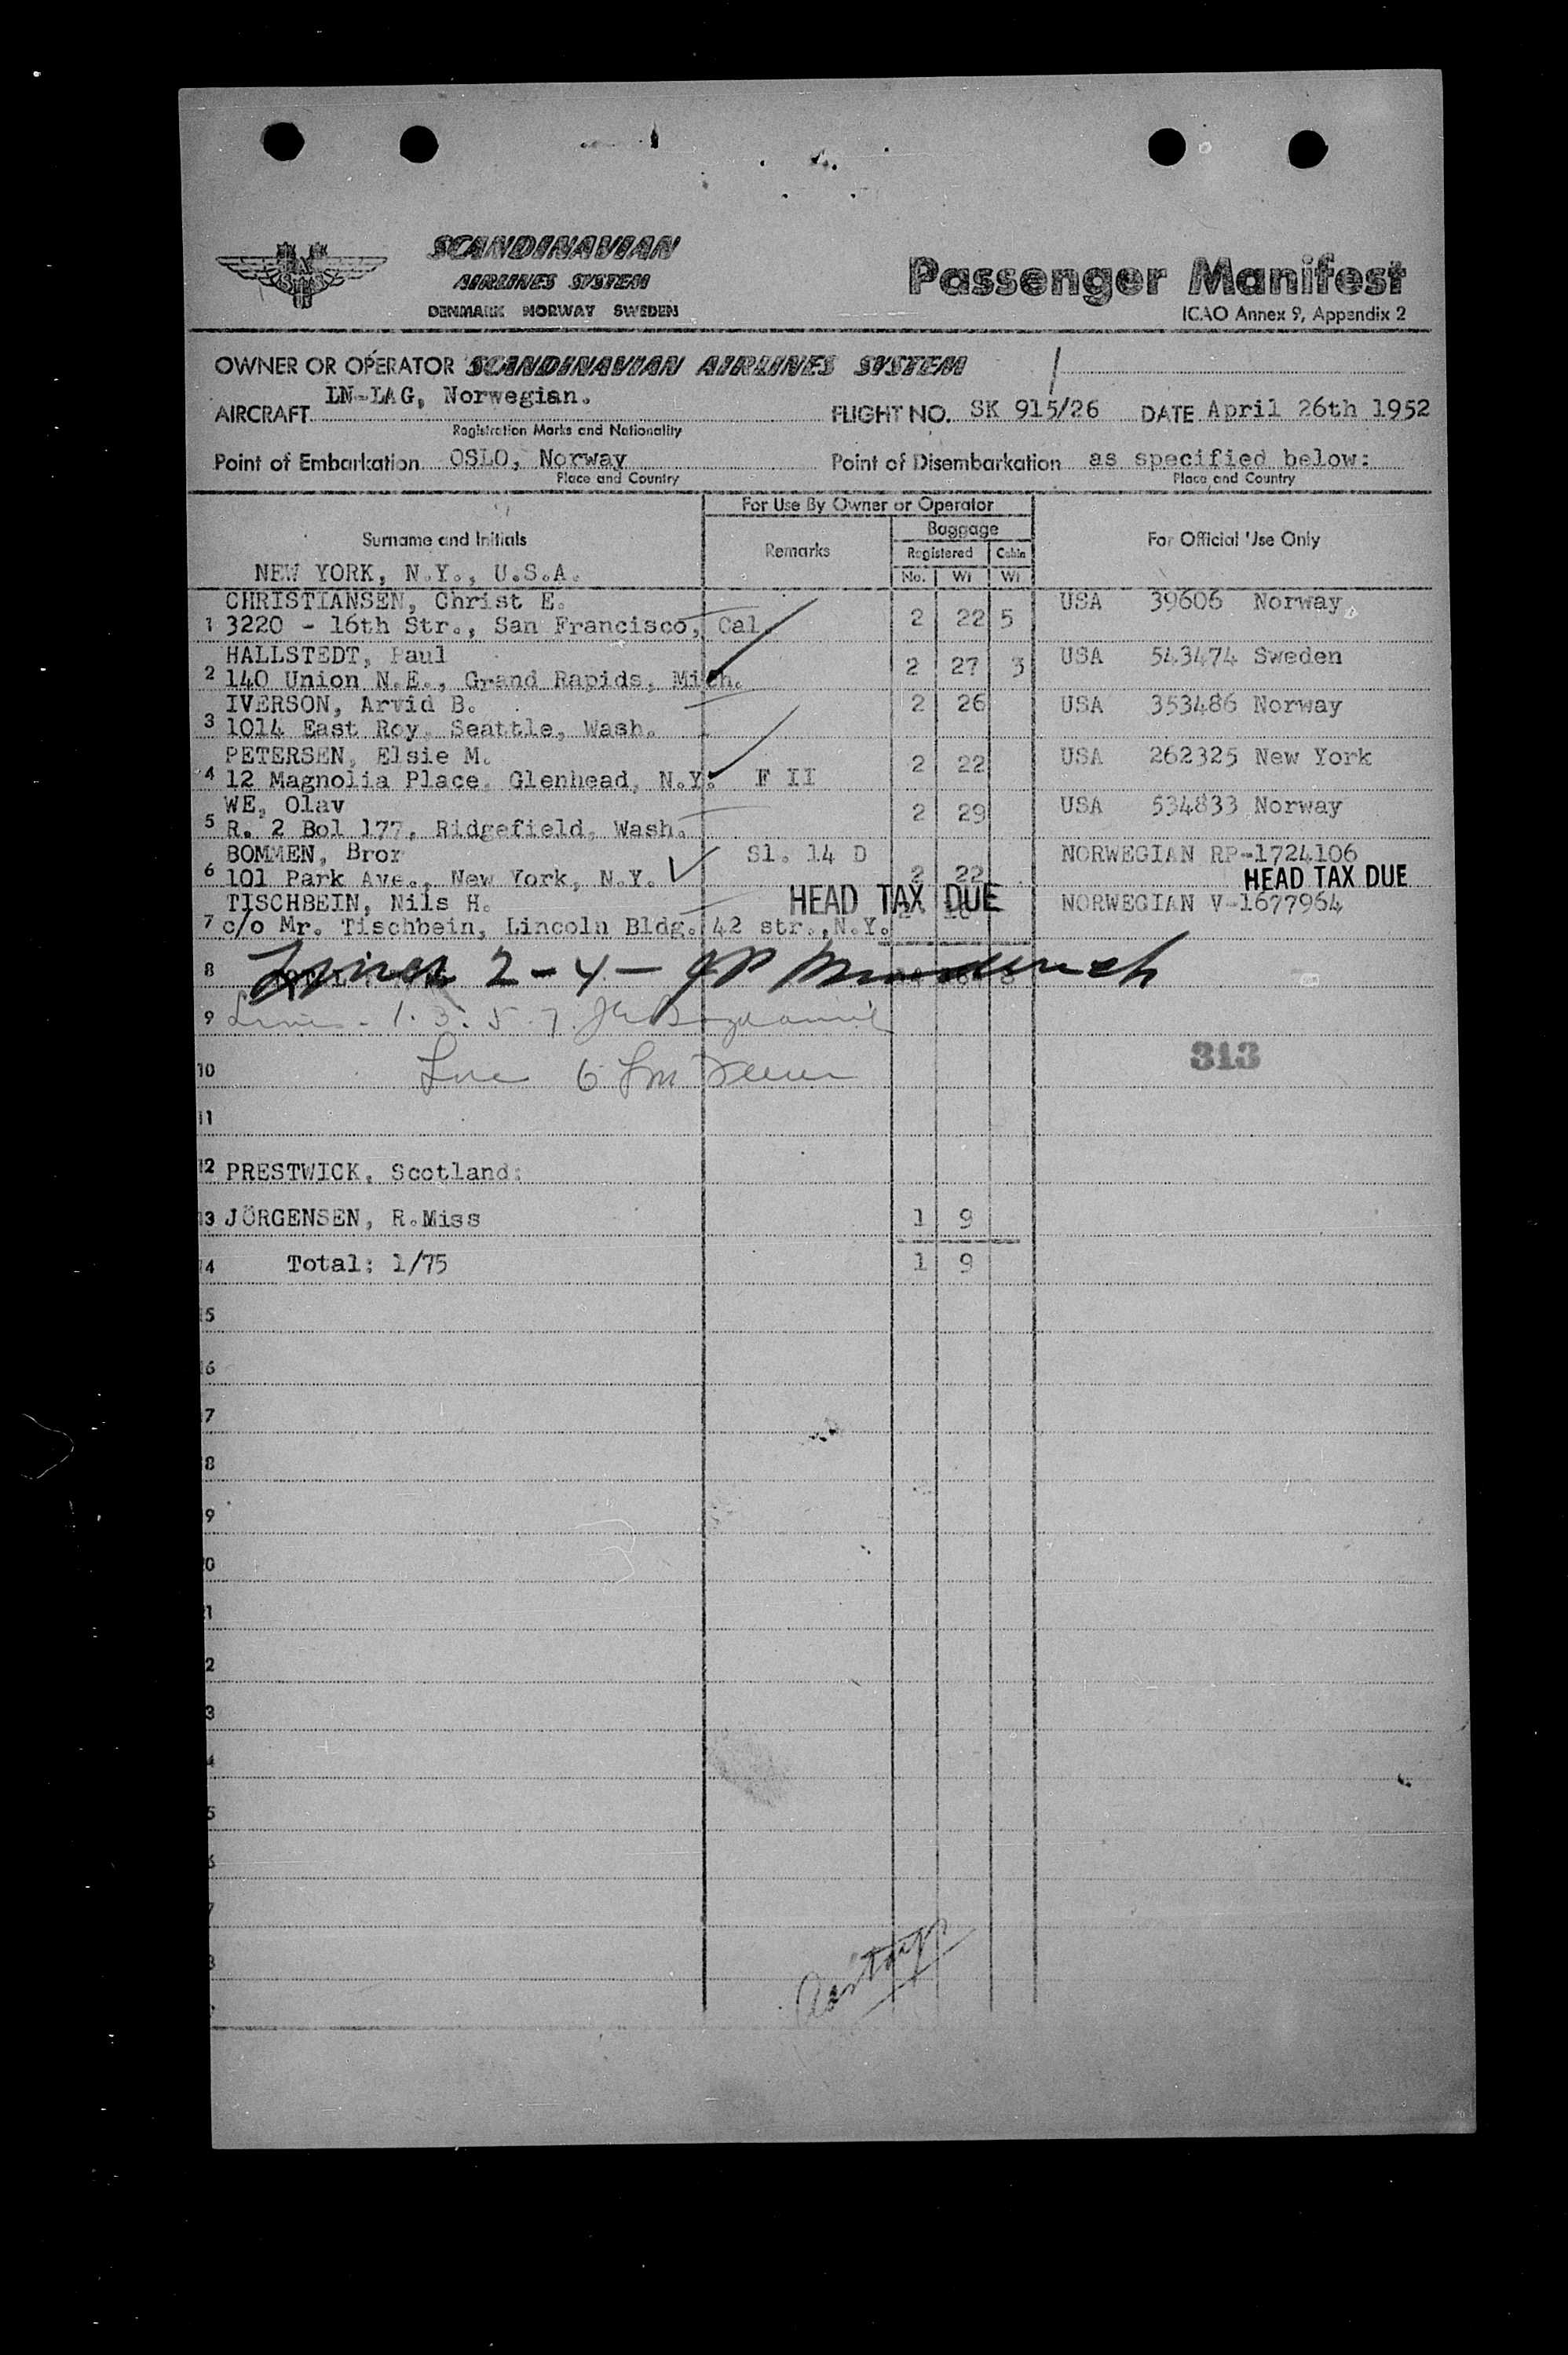 SCANDINAVIAN
AIRLINES SYSTEM
DENMARK NORWAY SWEDEN
Passenger Manifest
ICAO Annex 9, Appendix 2
OWNER OR OPERATOR SCANDINAVIAN AIRLINES SYSTEM
AIRCRAFT LN-LAG, Norwegian. FLIGHT NO. SK 915/26 DATE April 26th 1952
Registration Marks and Nationality
Point of Embarkation OSLO, Norway Point of Disembarkation as specified below:
Place and Country Place and Country
For Use By Owner or Operator
Surname and Initials Remarks Baggage For Official Use Only
Registered Cabin
NEW YORK, N.Y., U.S.A. No. Wt Wt
CHRISTIANSEN, Christ E. USA 39606 Norway
1 3220 - 16th Str., San Francisco, Cal. 2 22 5
HALLSTEDT, Paul USA 543474 Sweden
2 140 Union N.E., Grand Rapids, Mich. 2 27 3
IVERSON, Arvid B. 2 26 USA 353486 Norway
3 1014 East Roy, Seattle, Wash.
PETERSEN, Elsie M. USA 262325 New York
4 12 Magnolia Place, Glenhead, N.Y. F II 2 22
WE, Olav USA 534833 Norway
5 R. 2 Bol 177, Ridgefield, Wash. 2 29
BOMMEN, Bror Sl. 14 D NORWEGIAN RP-1724106
6 101 Park Ave., New York, N.Y. 2 22 HEAD TAX DUE
TISCHBEIN, Nils H. HEAD TAX DUE NORWEGIAN V-1677964
7 c/o Mr. Tischbein, Lincoln Bldg. 42 str., N.Y.
8 Lines 2-4-
9 Lines - 1. 3. 5. 7.
10 Line 6
313
11
12 PRESTWICK, Scotland:
13 JÖRGENSEN, R.Miss 1 9
14 Total: 1/75 1 9